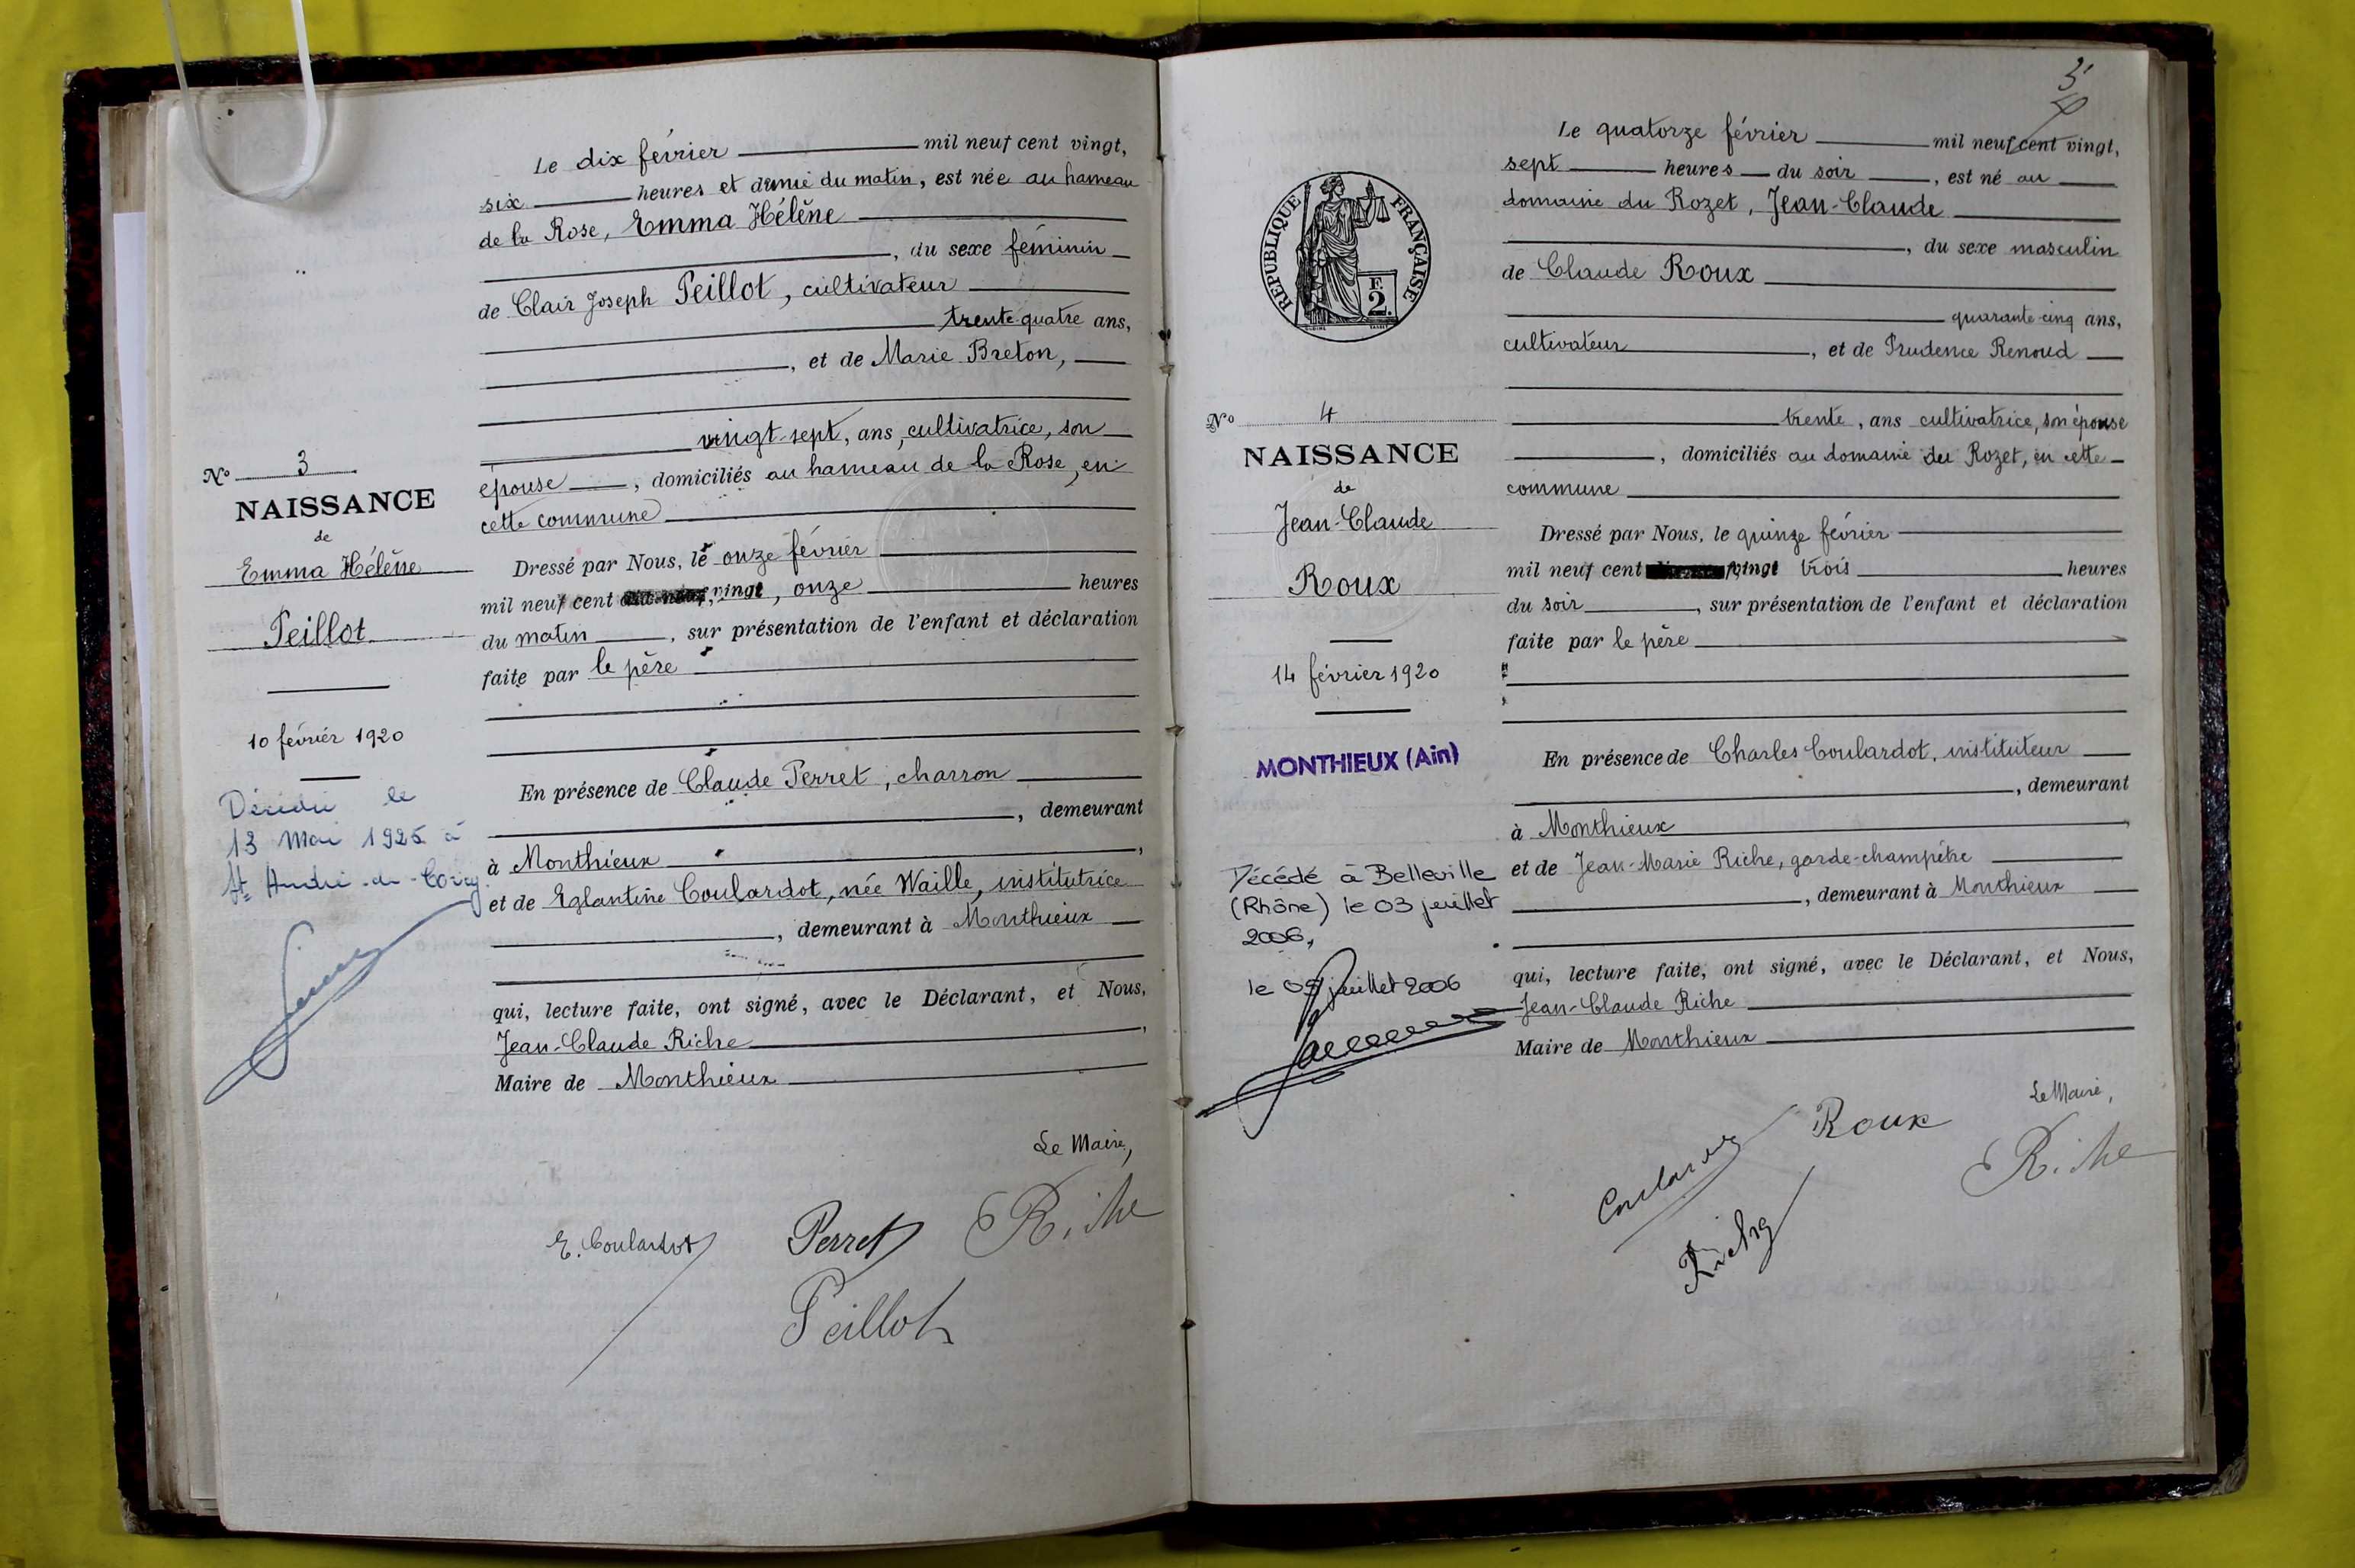 Le dix février mil neuf cent vingt,
six heures et demie du matin, est née au hameau
de la Rose, Emma Hélène
, du sexe féminin
de Clair Joseph Peillot, cultivateur
trente-quatre ans,
, et de Marie Breton,
vingt-sept, ans, cultivatrice, son
épouse, domiciliés au hameau de la Rose, en
cette commune
Dressé par Nous, le onze février
mil neuf cent vingt, onze heures
du matin, sur présentation de l'enfant et déclaration
faite par le père
En présence de Claude Perret, charron
, demeurant
à Monthieux,
et de Eglantine Coulardot, née Waille, institutrice
, demeurant à Monthieux
qui, lecture faite, ont signé, avec le Déclarant, et Nous,
Jean-Claude Riche,
Maire de Monthieux
Le Maire,
E. Coulardot Perret Riche
Peillot
N° 3
NAISSANCE
de
Emma Hélène
Peillot
10 février 1920
Décédée le
13 Mai 1925 à
St André-de-Corcy
3
Le quatorze février mil neuf cent vingt,
sept heures du soir, est né au
domaine du Rozet, Jean-Claude
, du sexe masculin
de Claude Roux
quarante-cinq ans,
cultivateur, et de Prudence Renoud
trente, ans cultivatrice, son épouse
, domiciliés au domaine du Rozet, en cette
commune
Dressé par Nous, le quinze février
mil neuf cent vingt trois heures
du soir, sur présentation de l'enfant et déclaration
faite par le père
En présence de Charles Coulardot, instituteur
, demeurant
à Monthieux,
et de Jean-Marie Riche, garde-champêtre
, demeurant à Monthieux
qui, lecture faite, ont signé, avec le Déclarant, et Nous,
Jean-Claude Riche
Maire de Monthieux
Le Maire,
Roux
Riche
RÉPUBLIQUE FRANÇAISE
F.
2.
N° 4
NAISSANCE
de
Jean-Claude
Roux
14 février 1920
MONTHIEUX (Ain)
Décédé à Belleville
(Rhône) le 03 juillet
2006,